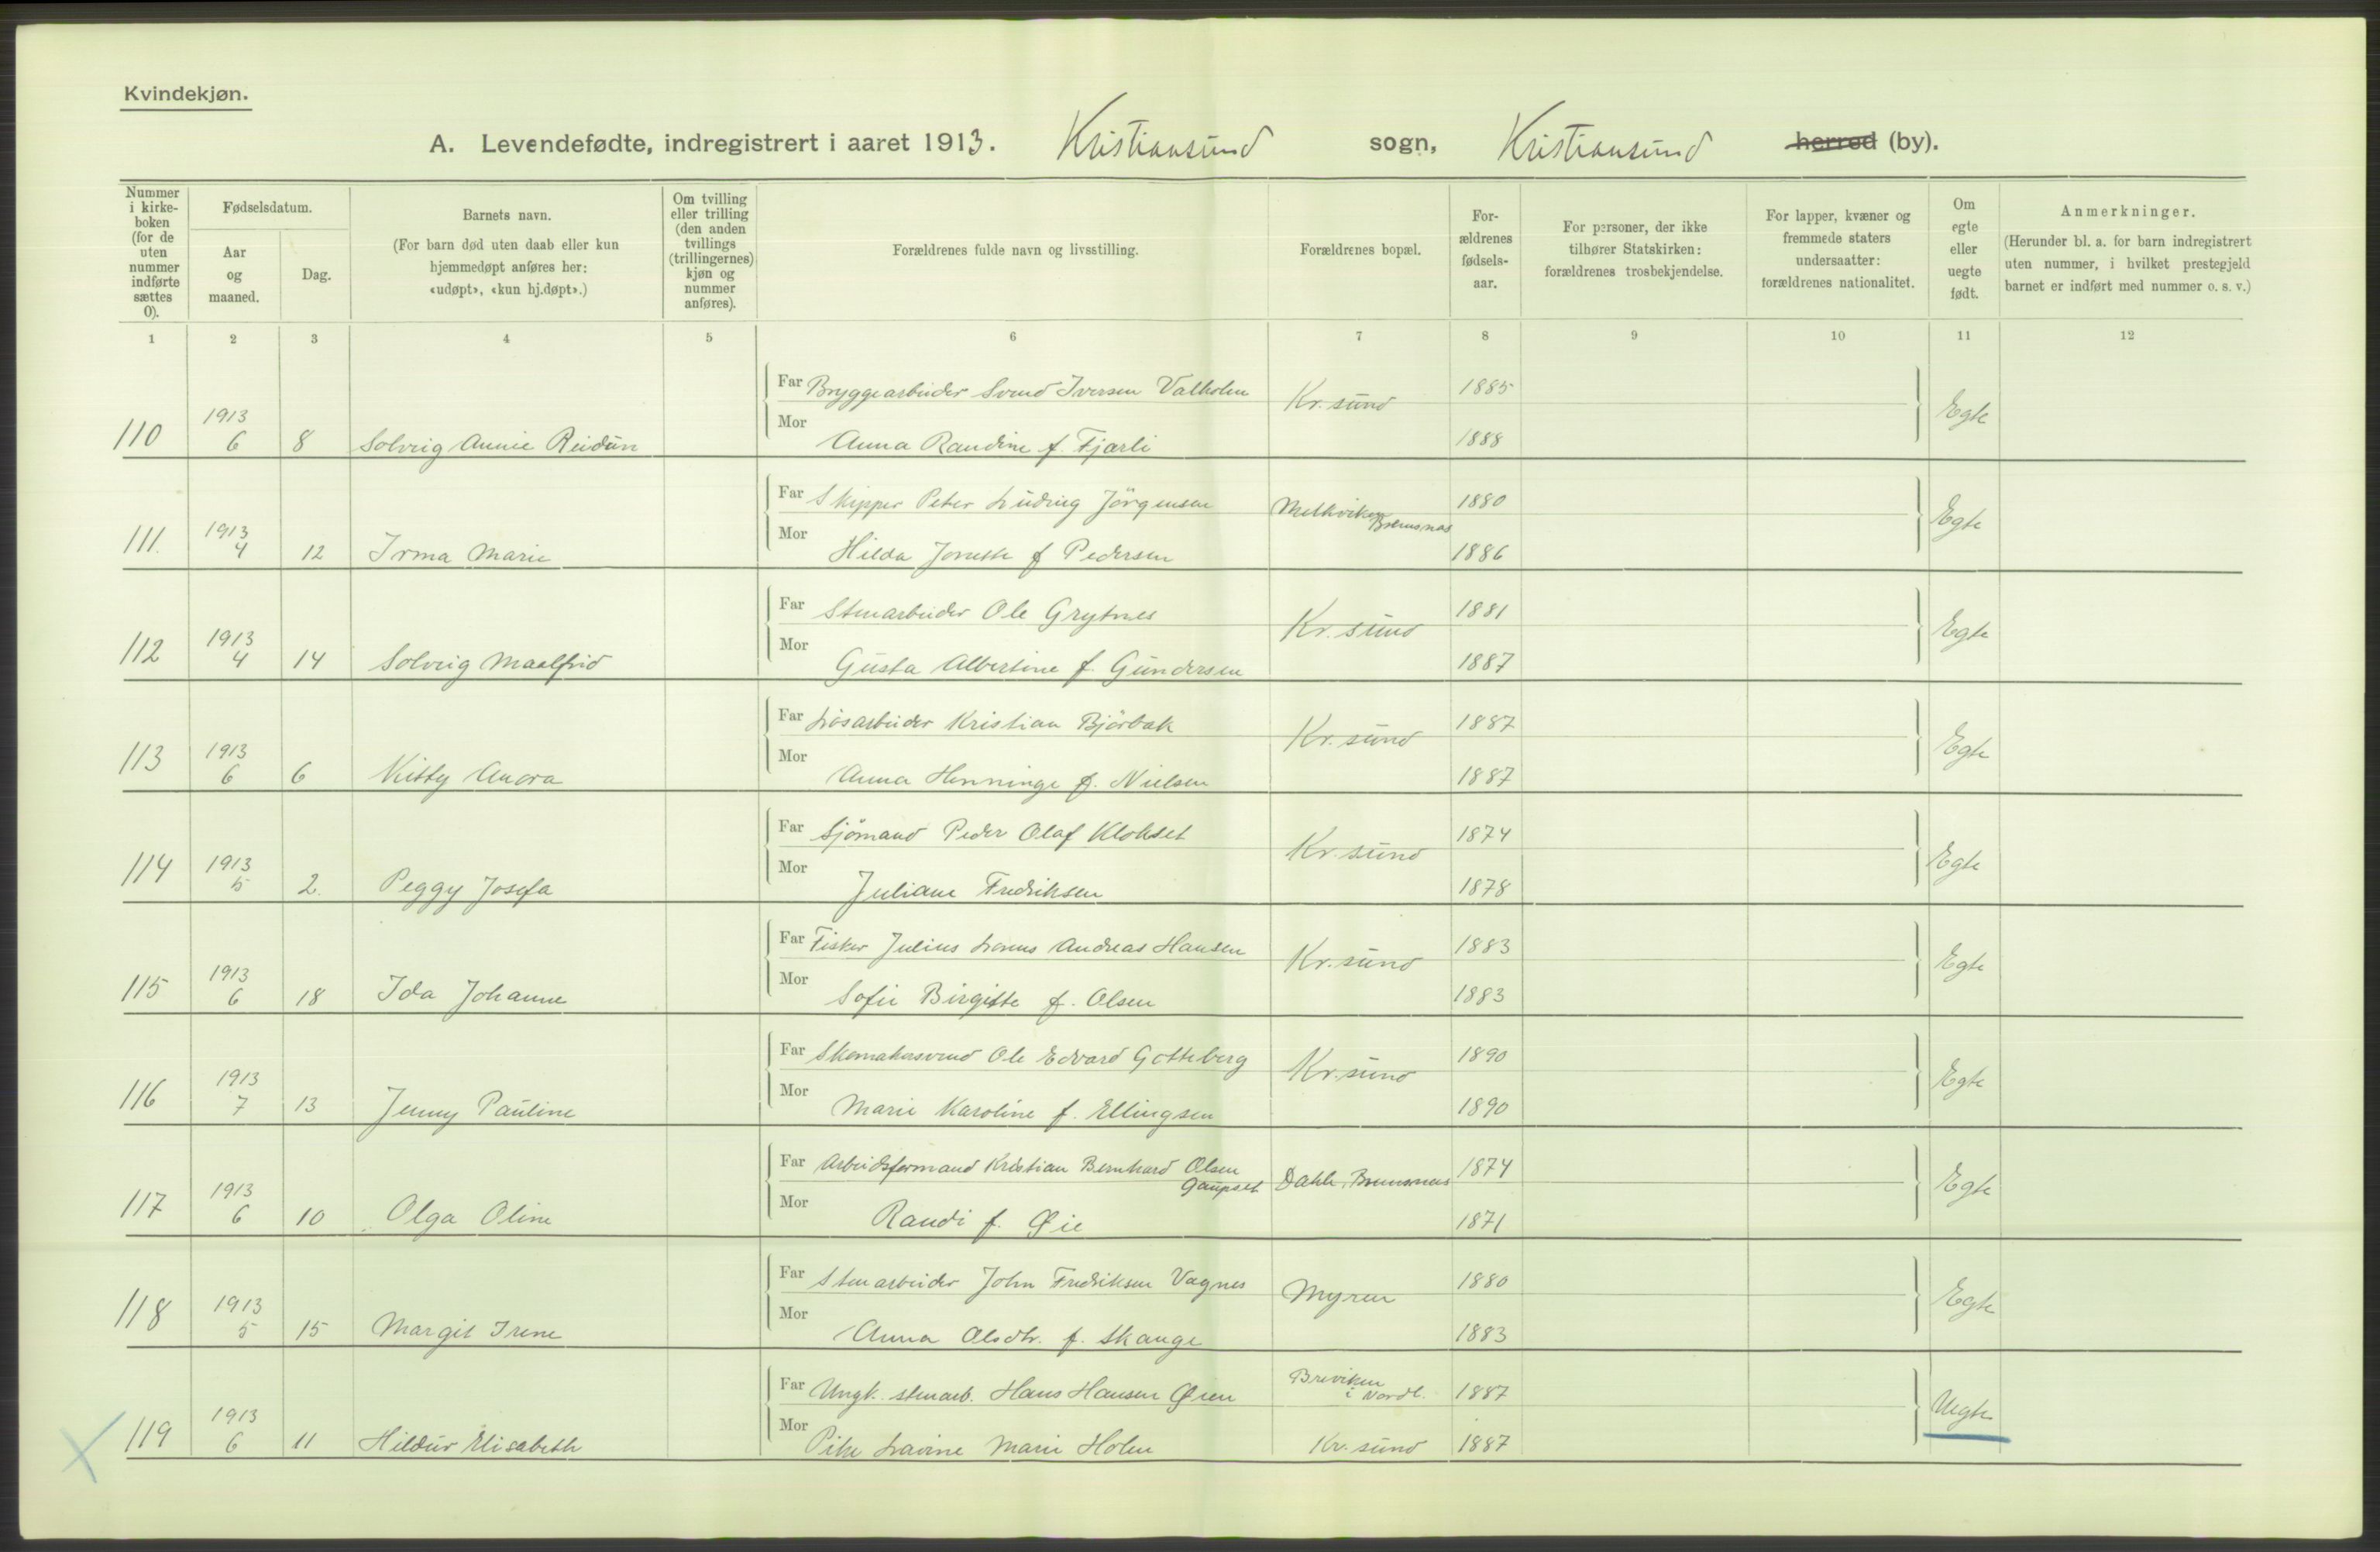 Kvindekjøn.
A. Levendefødte, indregistrert i aaret 1913. Kristiansund sogn, Kristiansund herred (by).
Nummer i kirkeboken (for de uten nummer indførte sættes 0).
Fødselsdatum.
Aar og maaned.
Dag.
Barnets navn.
(For barn død uten daab eller kun hjemmedøpt anføres her: «udøpt», «kun hj.døpt».)
Om tvilling eller trilling (den anden tvillings (trillingernes) kjøn og nummer anføres).
Forældrenes fulde navn og livsstilling.
Forældrenes bopæl.
Forældrenes fødselsaar.
For personer, der ikke tilhører Statskirken: forældrenes trosbekjendelse.
For lapper, kvæner og fremmede staters undersaatter: forældrenes nationalitet.
Om egte eller uegte født.
Anmerkninger.
(Herunder bl. a. for barn indregistrert uten nummer, i hvilket prestegjeld barnet er indført med nummer o. s. v.)
1 2 3 4 5 6 7 8 9 10 11 12
Far Bryggearbeider Svend Iversen Valholm Kr. sund 1885
110 1913 6 8 Solveig Annie Reidun Mor Anna Randine f. Fjærli 1888 Egte
Far Skipper Peter Ludvig Jörgensen Melkviken Bremsnes 1880
111. 1913 4 12 Irma Marie Mor Hilda Jonette f Pedersen 1886 Egte
Far Stenarbeider Ole Grytnes Kr. sund 1881
112 1913 4 14 Solveig Maalfrid Mor Gusta Albertine f. Gundersen 1887 Egte
Far Løsarbeider Kristian Bjørbak Kr. sund 1887
113 1913 6 6 Kitty Anora Mor Anna Henninge f. Nielsen 1887 Egte
Far Sjömand Peder Olaf Klokset Kr. sund 1874
114 1913 5 2. Peggy Josefa Mor Juliane Fredriksen 1878 Egte
Far Fisker Julius Andreas Hansen Kr. sund 1883
115 1913 6 18 Ida Johanne Mor Sofie Birgitte f. Olsen 1883 Egte
Far Skomakersvend Ole Edvard Gotteberg Kr. sund 1890
116 1913 7 13 Jenny Pauline Mor Marie Karoline f. Ellingsen 1890 Egte
Far Arbeidsformand Kristian Bernhard Olsen Gaupset Dahle, Bremsnes 1874
117 1913 6 10 Olga Oline Mor Randi f. Øie 1871 Egte
Far Stenarbeider John Fredriksen Vagnes Myren 1880
118 1913 5 15 Margit Irene Mor Anna Olsdtr. f. Skauge 1883 Egte
Far Ungk. stenarb. Hans Hansen Øien Breviken i Nordl. 1887
119 1913 6 11 Hildur Elisabeth Mor Pike Lavine Marie Holm Kr. sund 1887 Uegte